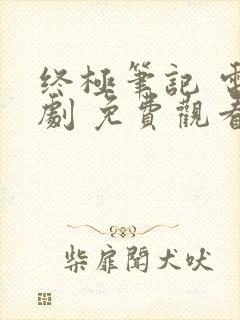 终極筆記 電
劇 免費觀看
柴扉聞犬吠